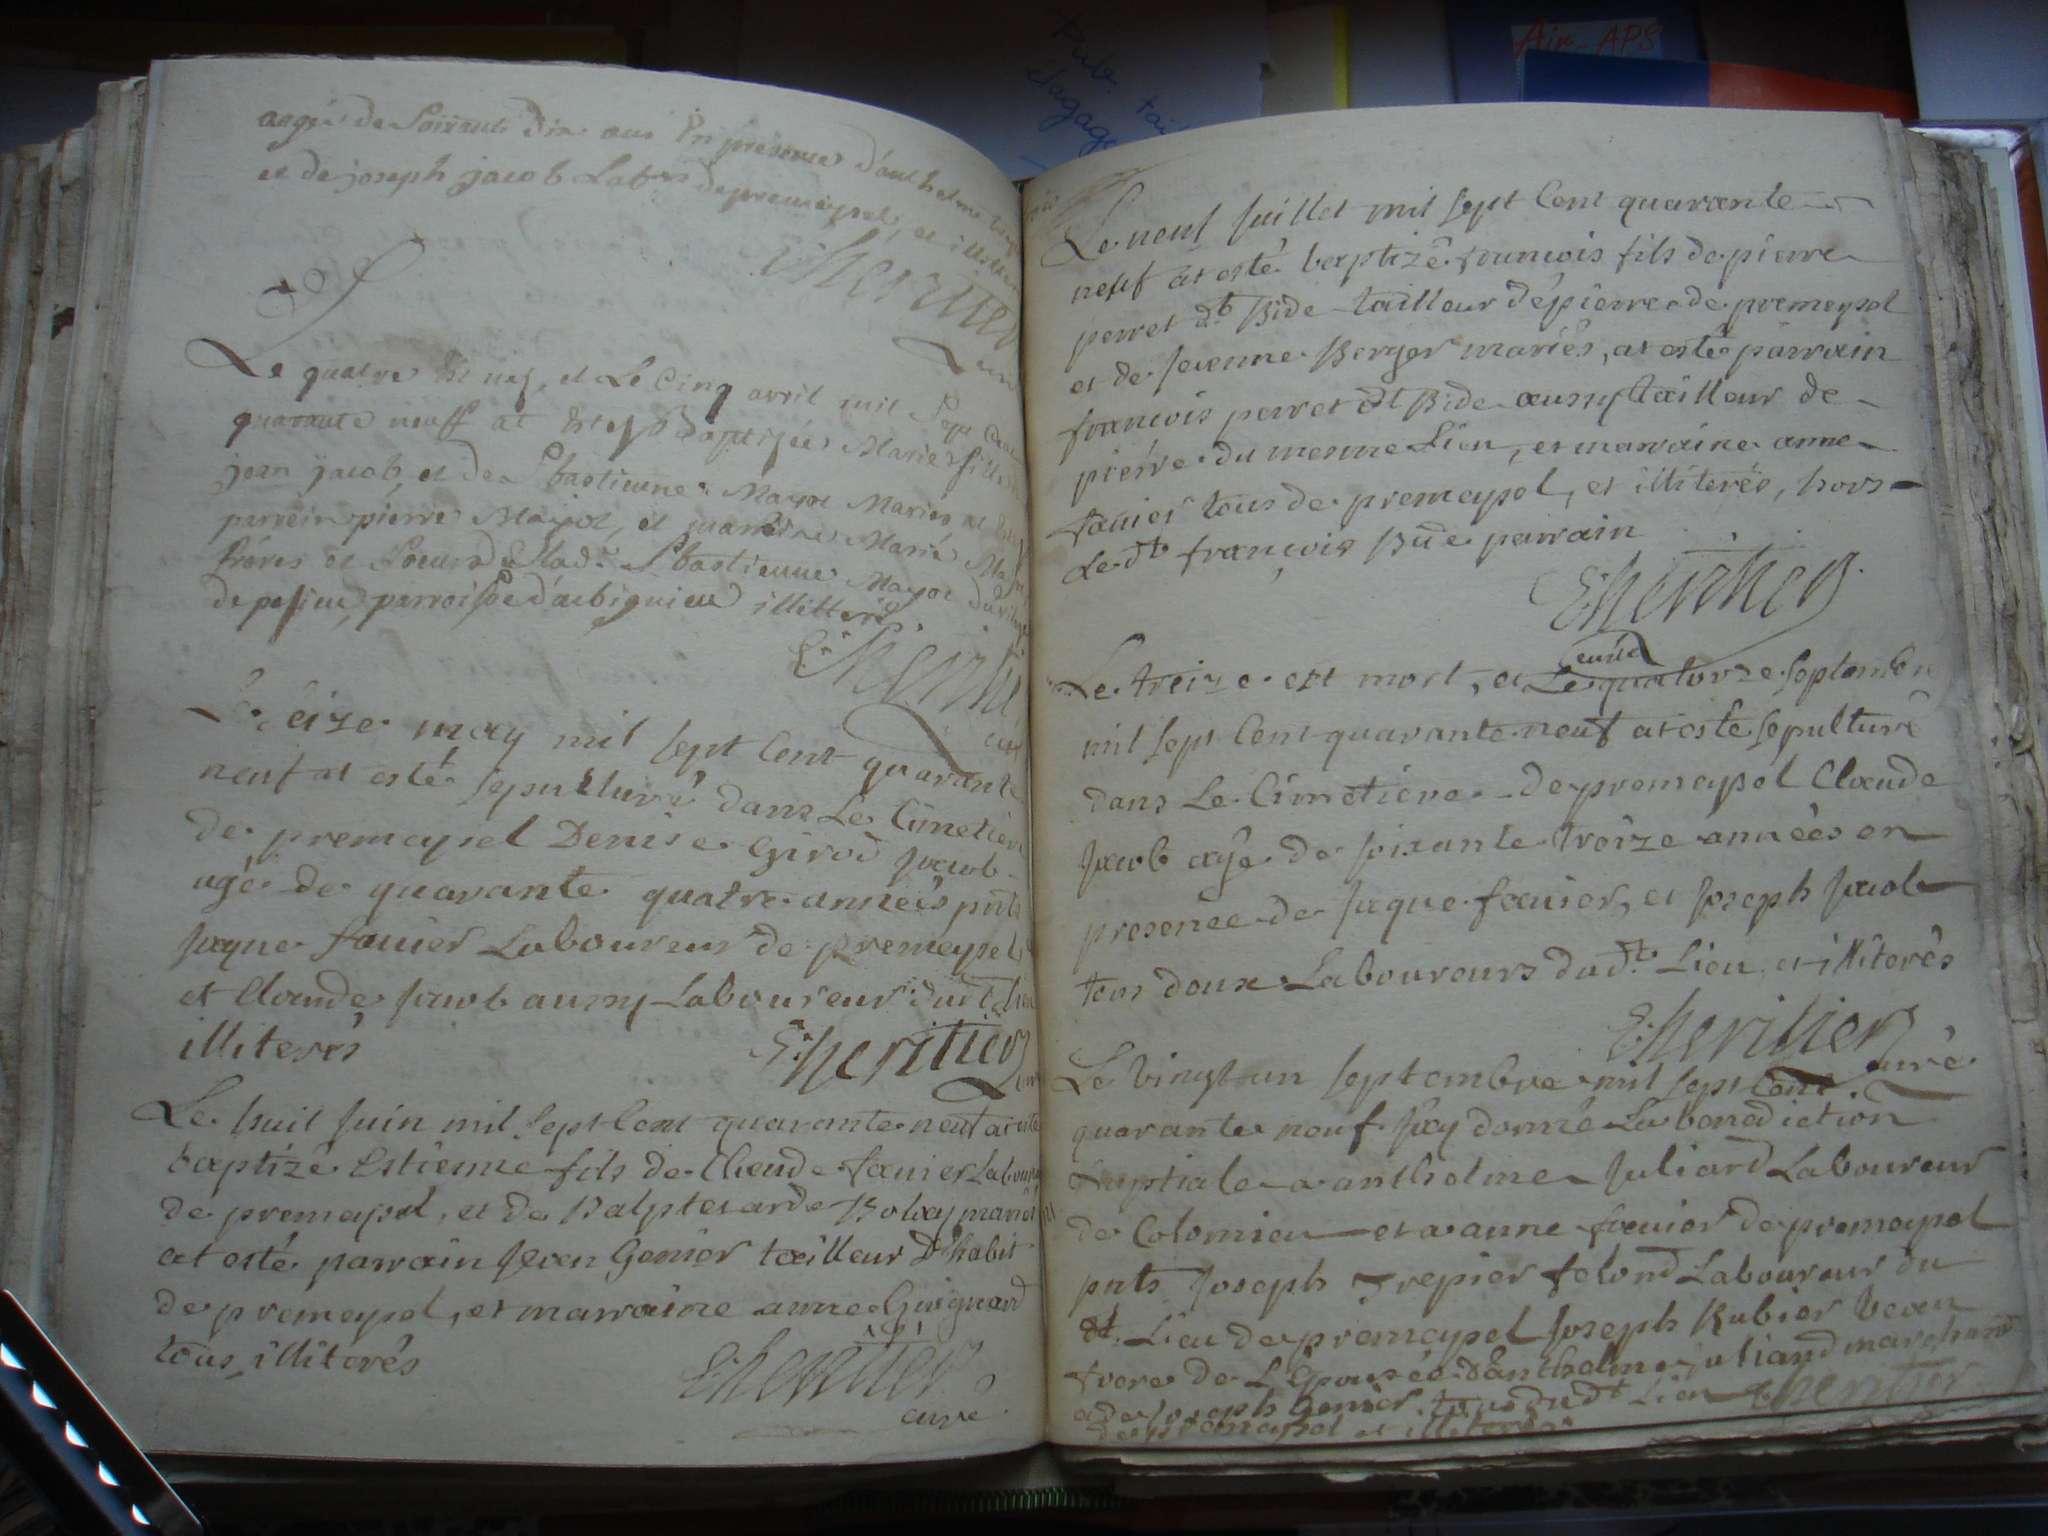 aagée de Soixante Dix ans En presence d'anthelme
et de joseph jacob Labrs de premeysel, et illitteres
E. Lheritier
Le quatre Est nez, et Le Cinq avril mil Sept Cent
quarante neuff at Esteés Baptizée Marie fille
jean jacob, et de Sbastienne Mayot Mariés at
parrein pierre Mayot, et marreine Marie
fréres et Soeurs de Lad.e Sbastienne Mayot du
de pesieu, parroisse d'arbignieu illitterés
E. Lheritier
Le seize may mil sept Cent quarante
neuf at esté sepulturé dans Le Cimetiere
de premeysel Denise Girod Jacob
agée de quarante quatre années pnts
Jaque fauier Laboureur de premeysel
et Claude Jacob aussy Laboureur dudt Lieu
illiterés
E. Lheritier
curé
Le huit Juin mil Sept Cent quarante neuf at esté
baptizé Estienne fils de Claude fauier Laboureur
de premeysel, et de Bolay mariés
at esté parrain Jean Genier tailleur D'habit
de premeysel, et marraine anne Guignard
tous illiterés
E. Lheritier
curé
Le neuf Juillet mil sept Cent quarante
neuf at esté baptizé francois fils de pierre
perret dt Bide tailleur de pierre de premeysel
et de Jeanne Berger mariés, at esté parrain
francois perret dt Bide aussy tailleur de
pierre du mesme Lieu, et marraine anne
fauier tous de premeysel, et illiterés, hors
Le dt françois Bide parrain
E. Lheritier
curé
Le treize est mort, et Le quatorze Septembre
mil sept Cent quarante neuf at esté sepulturé
dans Le Cimetiere de premeysel Claude
Jacob agé de soixante treize années en
presence de Jaque fauier, et Joseph Jacob
tous deux Laboureurs dudt Lieu et illiterés
E. Lheritier
curé
Le vingt un septembre mil sept Cent
quarante neuf J'ay donné La benediction
Nuptiale a anthelme Juliard Laboureur
de Colomieu et a anne fauier de premeysel
pnts Joseph Trepier felond Laboureur du
dt. Lieu de premeysel Joseph Rubier beau
frere de L'Epousée d'anthelme juliand marchand
et de Joseph Genier tous dudt Lieu E. Lheritier
de premeysel et illiterés